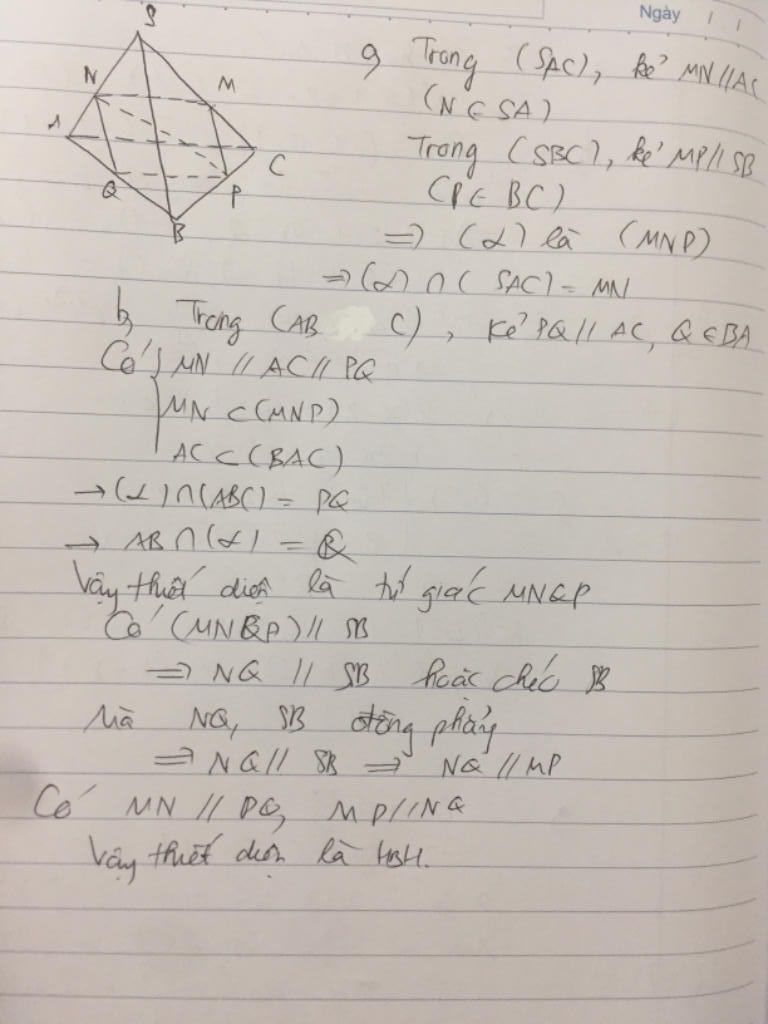 Ngày / /
S
N
M
A
C
Q
P
B
a, Trong (SAC), kẻ MN//AC
(N ∈ SA)
Trong (SBC), kẻ MP//SB
(P ∈ BC)
=> (α) là (MNP)
=> (α) ∩ (SAC) = MN
b, Trong (AB C), kẻ PQ// AC, Q ∈ BA
Có { MN // AC // PQ
MN ⊂ (MNP)
AC ⊂ (BAC)
→ (α) ∩ (ABC) = PQ
→ AB ∩ (α) = Q
Vậy thiết diện là tứ giác MNQP
Có (MNQP) // SB
=> NQ // SB hoặc chéo SB
Mà NQ, SB đồng phẳng
=> NQ // SB => NQ // MP
Có MN // PQ, MP//NQ
Vậy thiết diện là HBH.